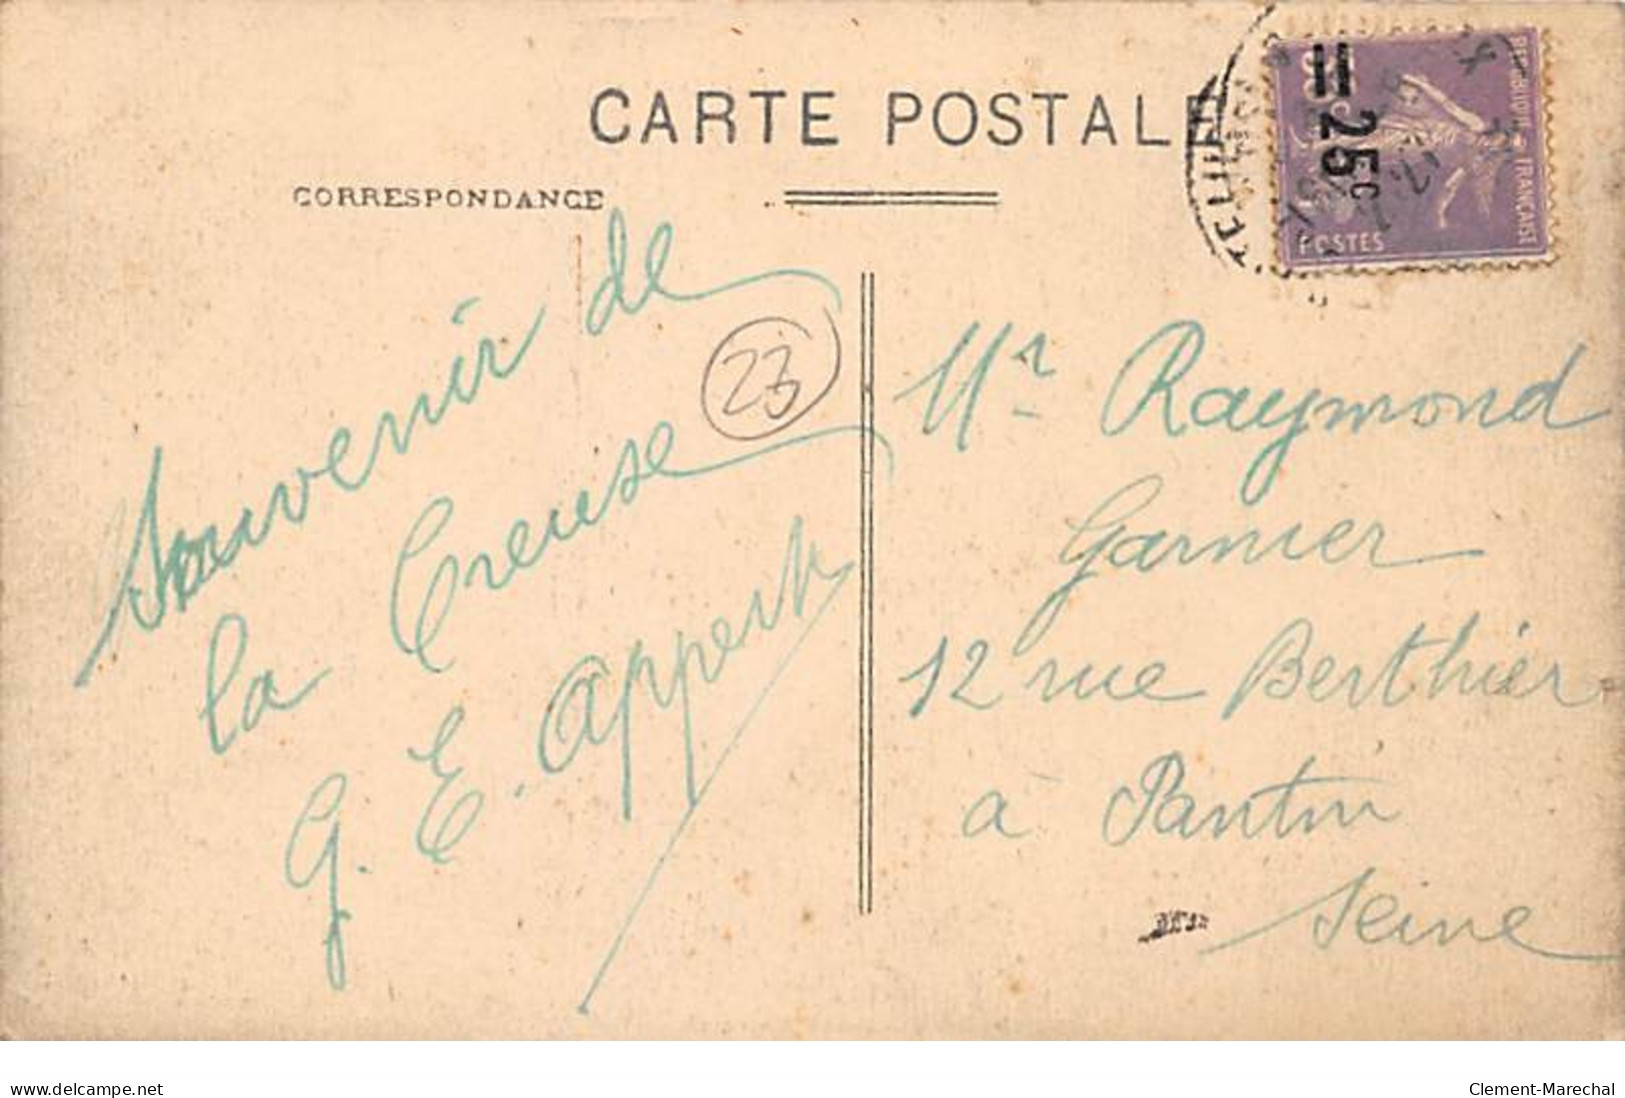 CARTE POSTALE
CORRESPONDANCE
REPUBLIQUE FRANÇAISE
25c
POSTES
Souvenir de
la Creuse
G. E. Appert
23
Mr Raymond
Garnier
12 rue Berthier
à Pantin
Seine
www.delcampe.net
Clement-Marechal